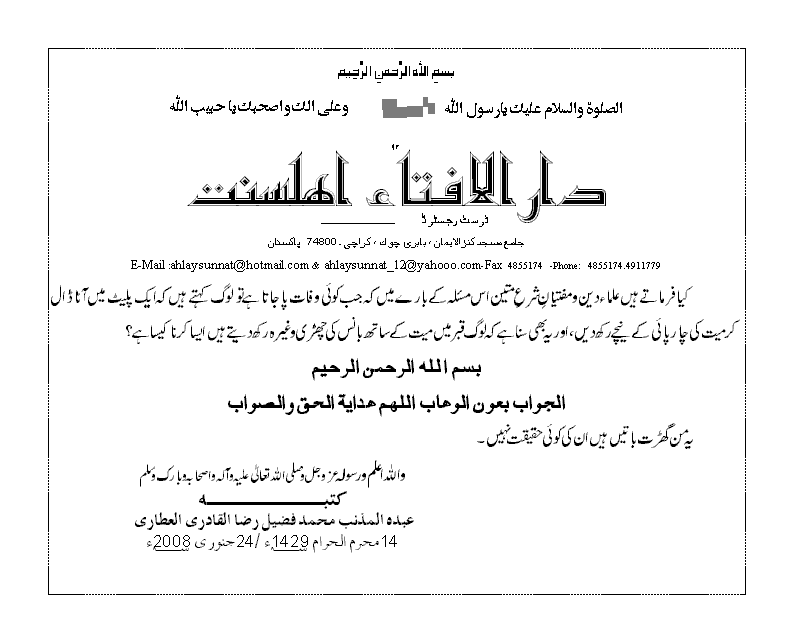 بسم اللہ الرّحمن الرّحیم
الصلوۃ والسلام علیک یارسول اللہ وعلی الک واصحبک یا حبیب اللہ
۹۲
دار الافتاء اھلسنت
ٹرسٹ رجسٹرڈ
جامع مسجد کنزالایمان ، بابری چوک ، کراچی ۔ 74800 پاکستان
E-Mail :ahlaysunnat@hotmail.com & ahlaysunnat_12@yahooo.com-Fax 4855174 -Phone: 4855174.4911779
کیا فرماتے ہیں علماء دین و مفتیانِ شرع متین اس مسئلہ کے بارے میں کہ جب کوئی وفات پا جاتا ہے تو لوگ کہتے ہیں کہ ایک پلیٹ میں آٹا ڈال
کر میت کی چارپائی کے نیچے رکھ دیں، اور یہ بھی سنا ہے کہ لوگ قبر میں میت کے ساتھ بانس کی چھڑی وغیرہ رکھ دیتے ہیں ایسا کرنا کیسا ہے؟
بسم الله الرحمن الرحيم
الجواب بعون الوهاب اللهم هداية الحق والصواب
یہ من گھڑت باتیں ہیں ان کی کوئی حقیقت نہیں ۔
واللہ اعلم ورسولہ عزوجل وصلی اللہ تعالیٰ علیہ وآلہ واصحابہ وبارک وسلم
کتبــــــــــــــہ
عبده المذنب محمد فضیل رضا القادری العطاری
14 محرم الحرام 1429ء /24 جنوری 2008ء